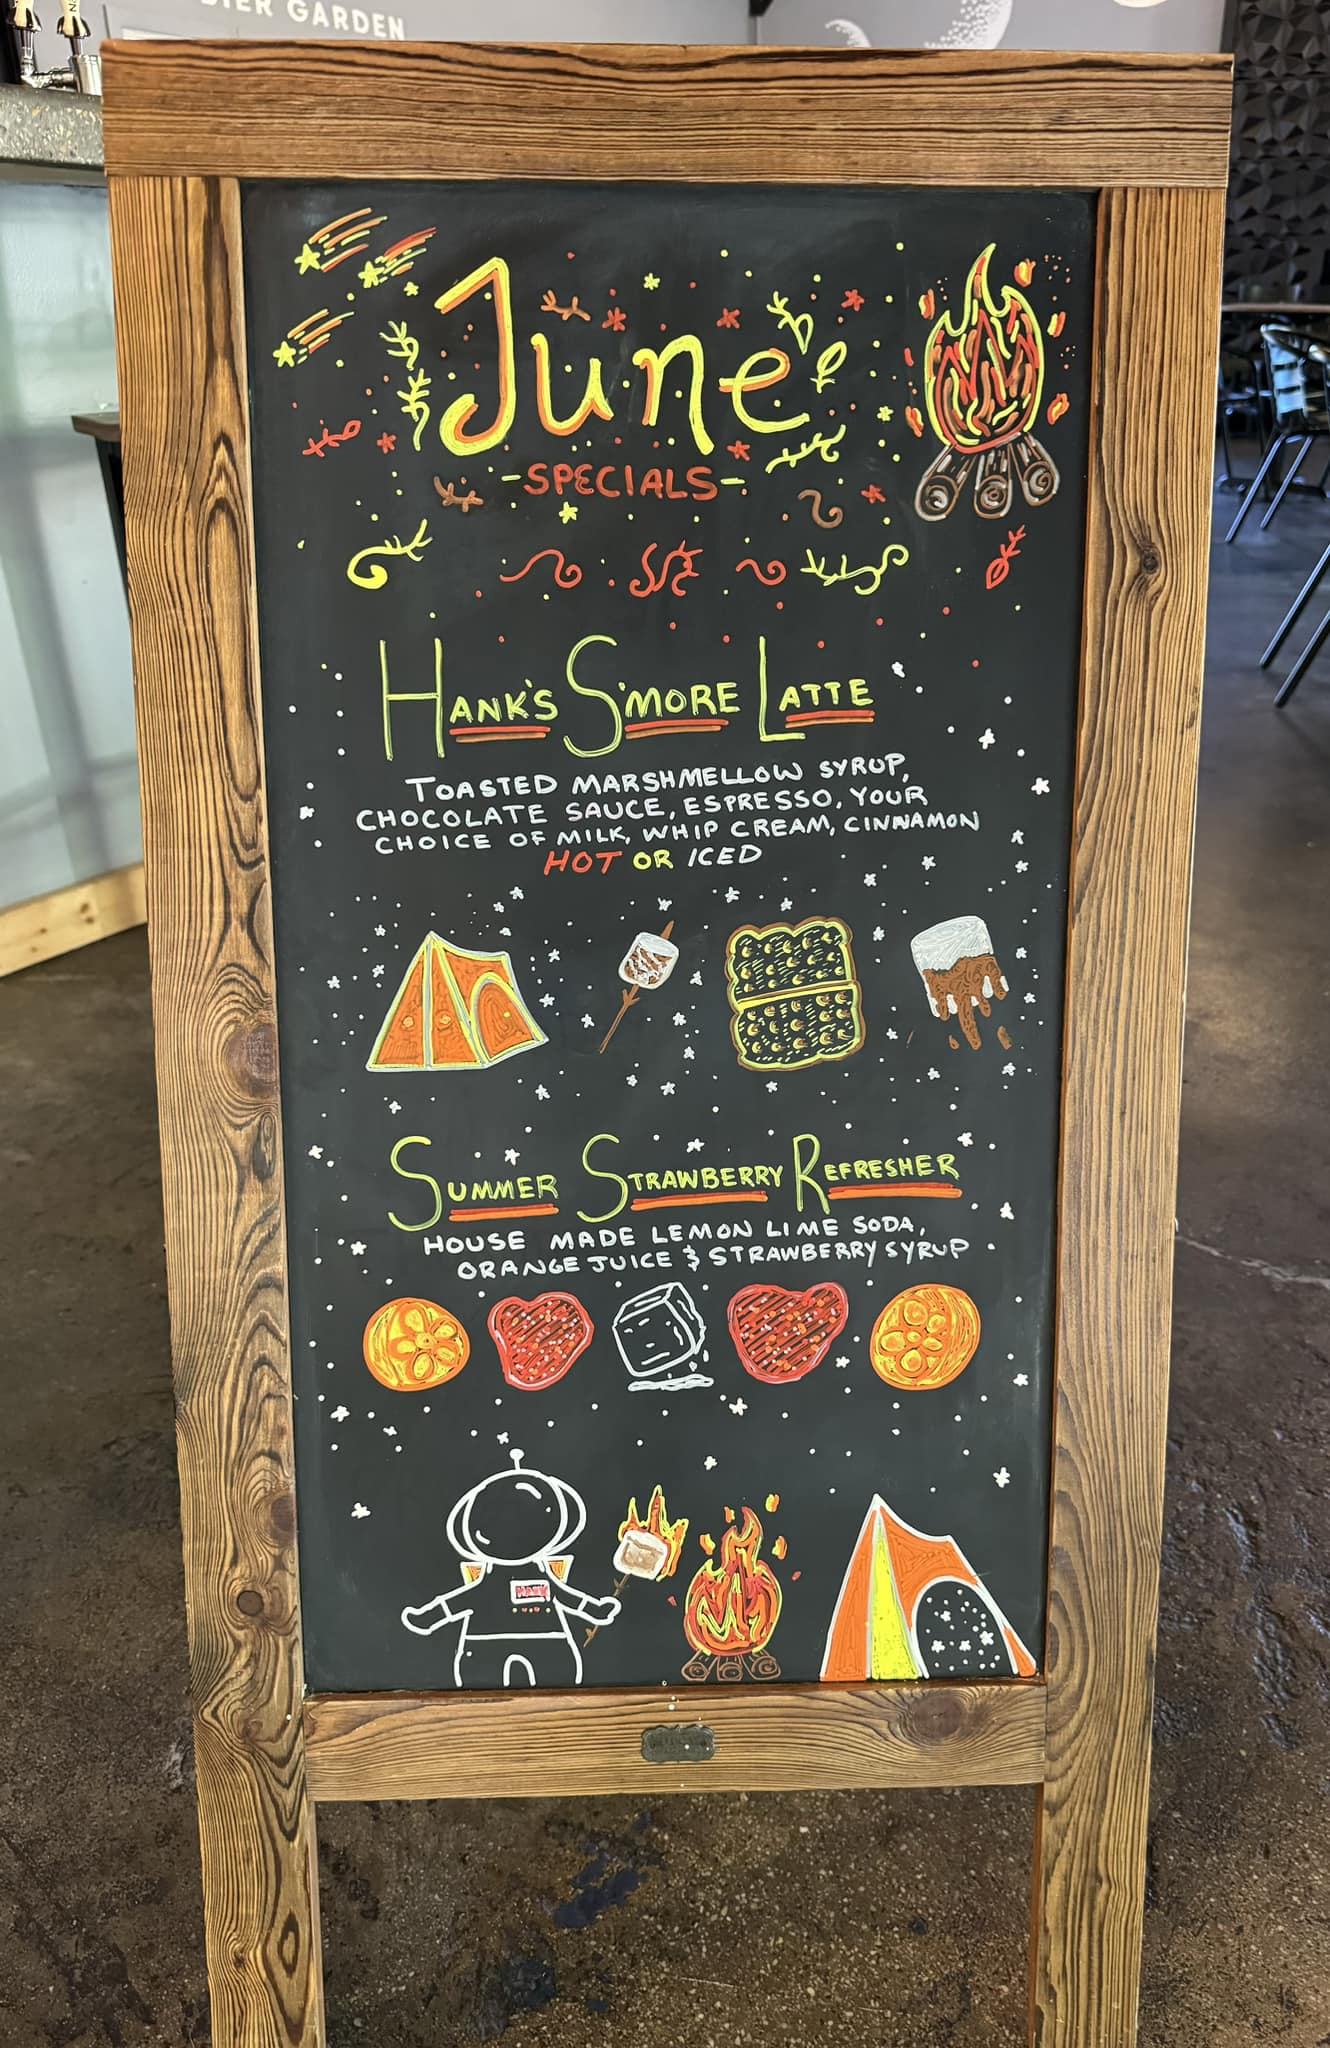 BIER GARDEN
June
-SPECIALS-
HANK'S S'MORE LATTE
TOASTED MARSHMELLOW SYRUP,
CHOCOLATE SAUCE, ESPRESSO, YOUR
CHOICE OF MILK, WHIP CREAM, CINNAMON
HOT OR ICED
SUMMER STRAWBERRY REFRESHER
HOUSE MADE LEMON LIME SODA,
ORANGE JUICE & STRAWBERRY SYRUP
HANK